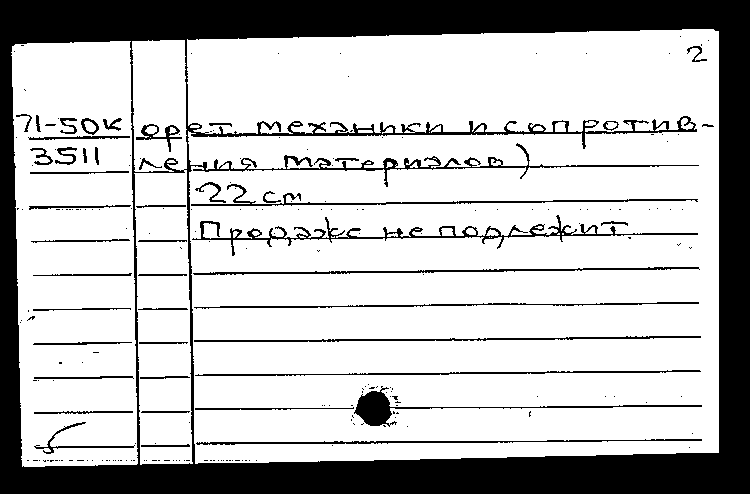 2
71-50к орет. механики и сопротив-
3511 ления материалов)
22 см.
Продаже не подлежит.